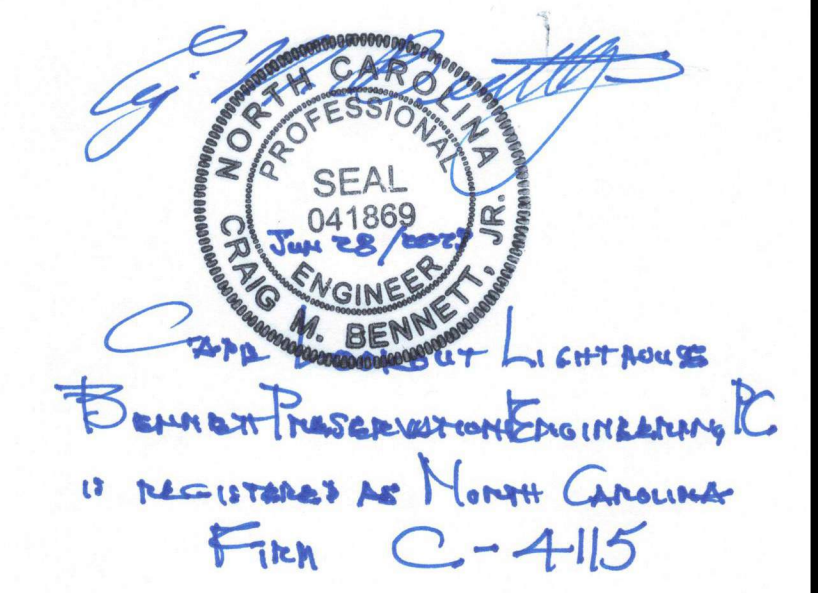 NORTH CAROLINA
PROFESSIONAL
SEAL
041869
Jun 28/2023
ENGINEER
CRAIG M. BENNETT, JR.
CAPE LOOKOUT LIGHTHOUSE
BENNETT PRESERVATION ENGINEERING, PC
IS REGISTERED AS NORTH CAROLINA
FIRM C-4115